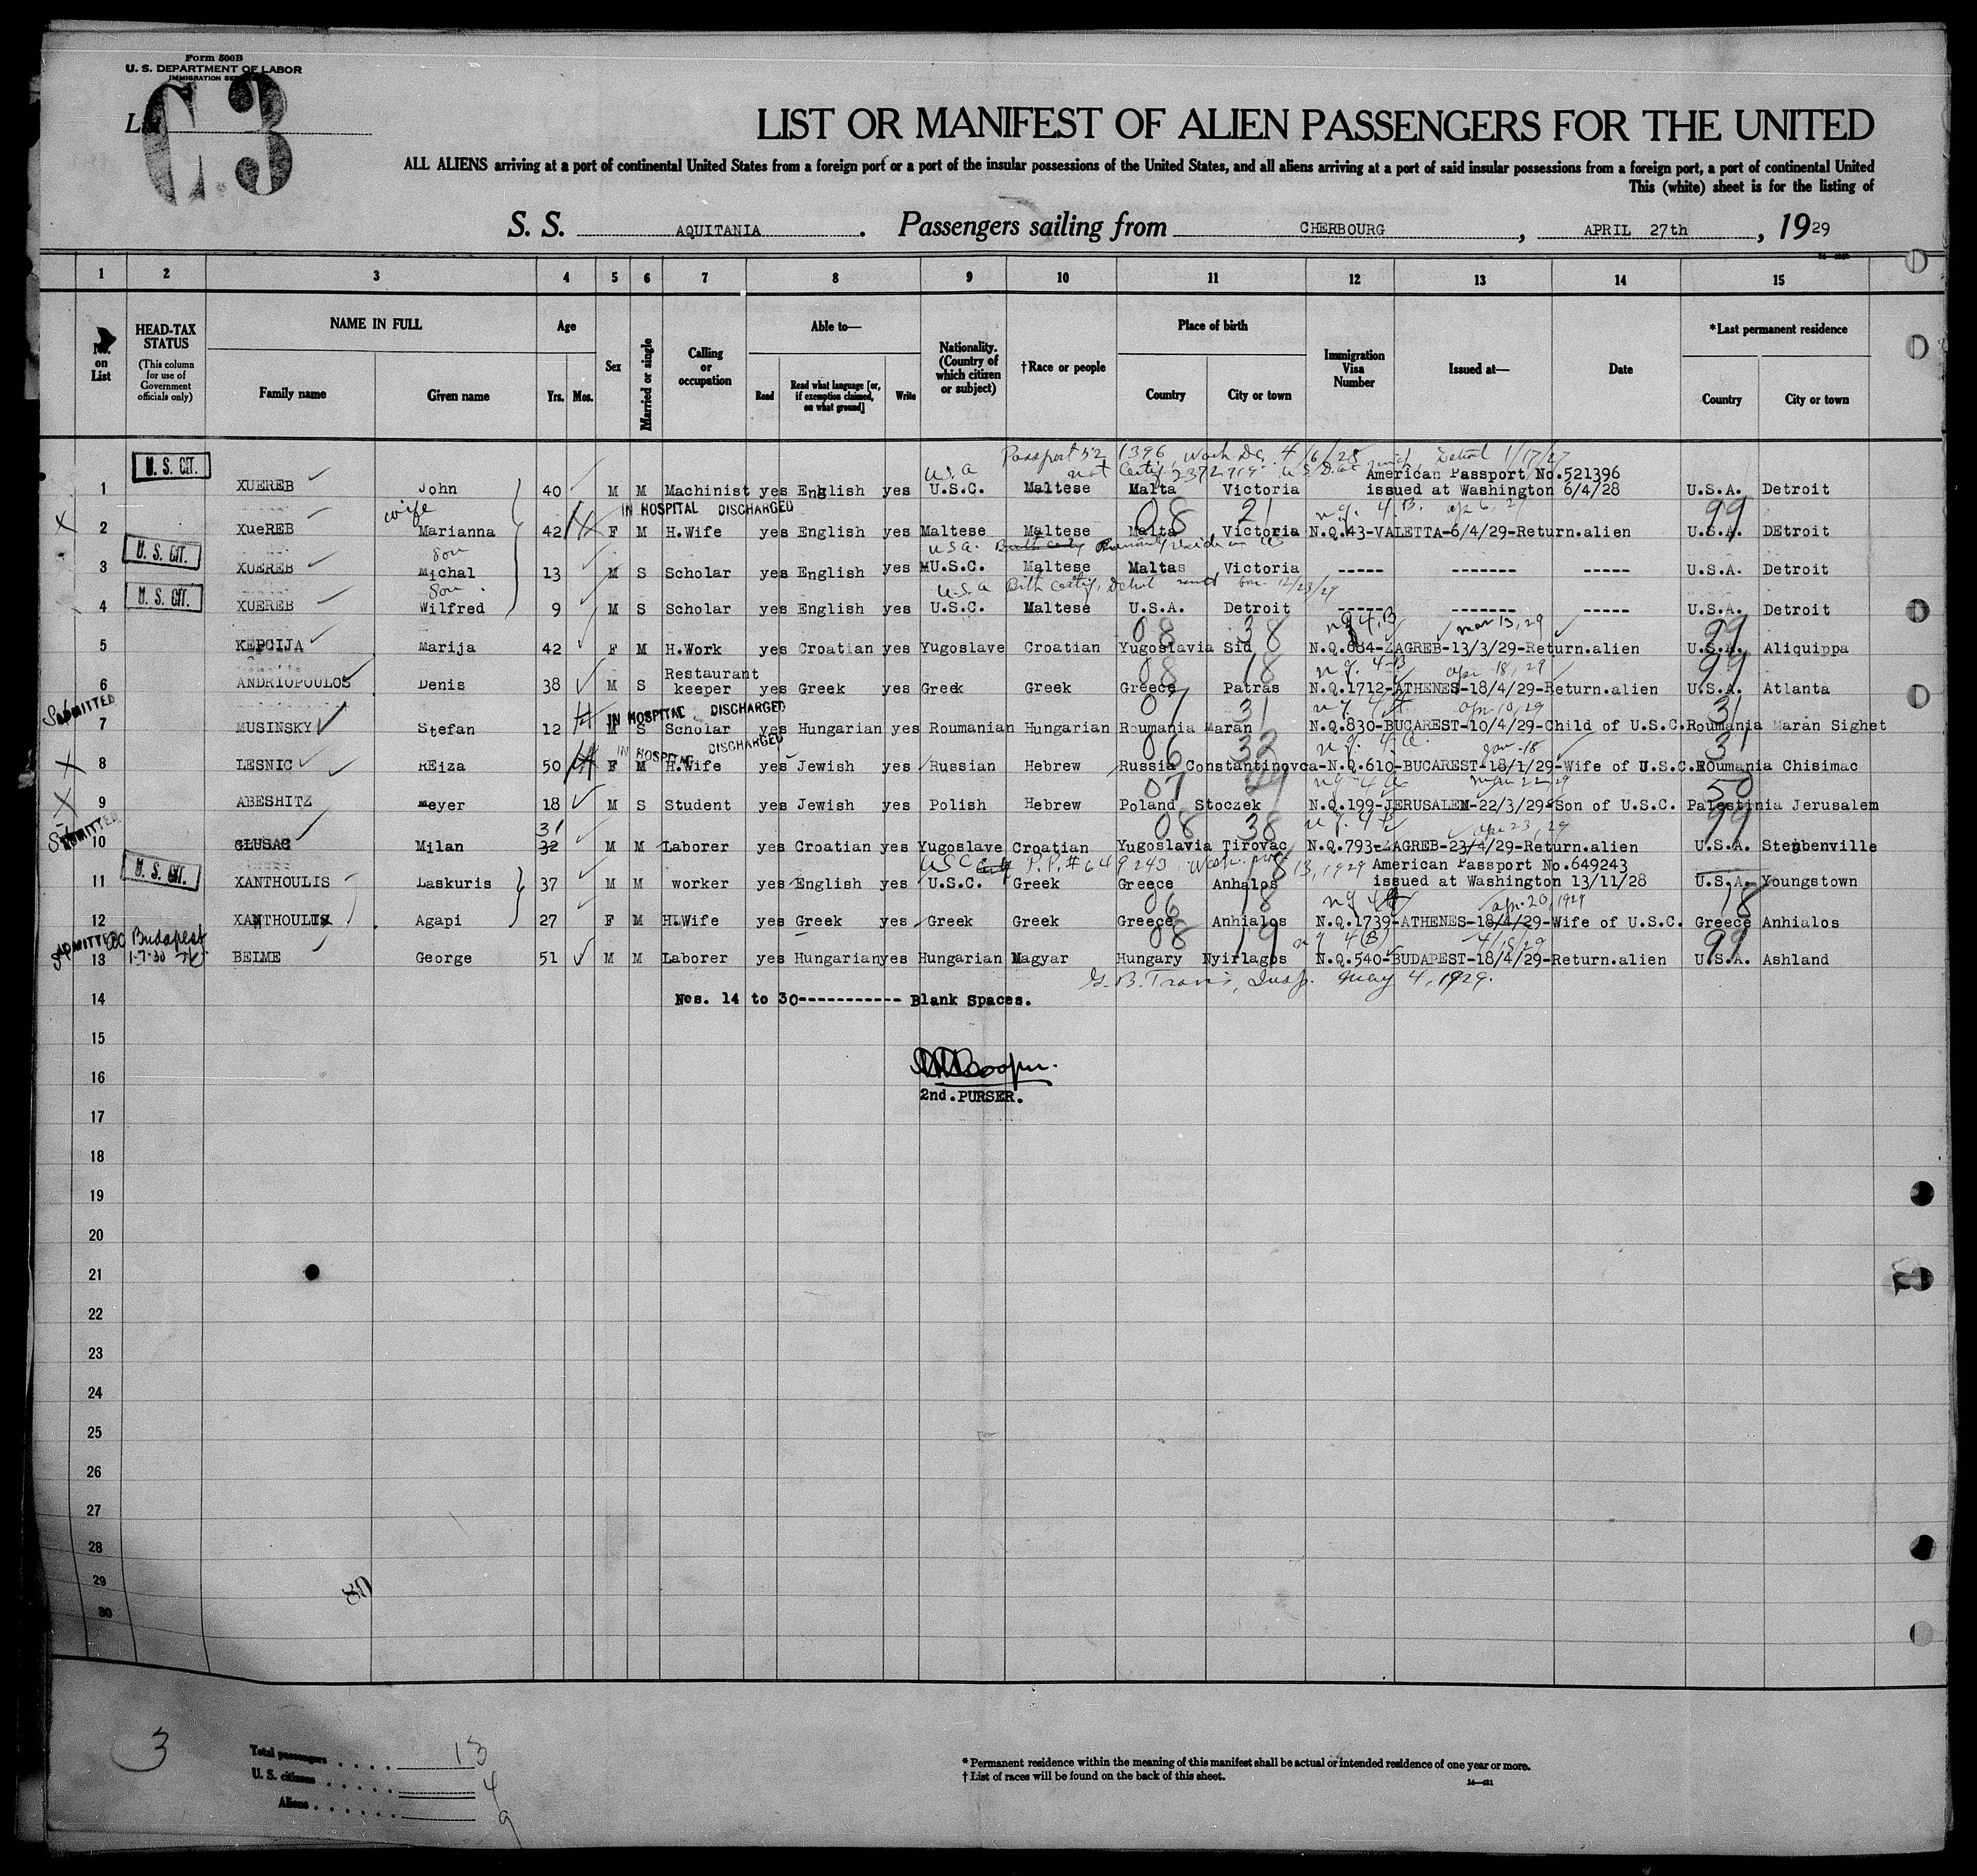 Form 500B
U. S. DEPARTMENT OF LABOR
C.3
LIST OR MANIFEST OF ALIEN PASSENGERS FOR THE UNITED
ALL ALIENS arriving at a port of continental United States from a foreign port or a port of the insular possessions of the United States, and all aliens arriving at a port of said insular possessions from a foreign port, a port of continental United
This (white) sheet is for the listing of
S. S. AQUITANIA. Passengers sailing from CHERBOURG, APRIL 27th, 1929
1 2 3 4 5 6 7 8 9 10 11 12 13 14 15
No. on List
HEAD-TAX STATUS
(This column for use of Government officials only)
NAME IN FULL
Family name
Given name
Age
Yrs. Mos.
Sex
Married or single
Calling or occupation
Able to—
Read
Read what language [or, if exemption claimed, on what ground]
Write
Nationality. (Country of which citizen or subject)
†Race or people
Place of birth
Country
City or town
Immigration Visa Number
Issued at—
Date
*Last permanent residence
Country
City or town
U. S. CIT.
Detroit 1/17/27
U.S.A
American Passport No.521396
1 XUEREB John 40 M M Machinist yes English yes U.S.C. Maltese Malta Victoria issued at Washington 6/4/28 U.S.A. Detroit
wife
IN HOSPITAL DISCHARGED
08 21 99
2 XueREB Marianna 42 F M H.Wife yes English yes Maltese Maltese Malta Victoria N.Q.43-VALETTA-6/4/29-Return.alien U.S.A. DEtroit
U. S. CIT.
Son
USA.
3 XUEREB Michal 13 M S Scholar yes English yes U.S.C. Maltese Maltas Victoria ----- ------- ----- U.S.A. Detroit
U. S. CIT.
Son
U.S.A Birth Certif. Detroit
4 XUEREB Wilfred 9 M S Scholar yes English yes U.S.C. Maltese U.S.A. Detroit ----- ------- ----- U.S.A. Detroit
08 38 Mar 13, 29 99
5 KEPCIJA Marija 42 F M H.Work yes Croatian yes Yugoslave Croatian Yugoslavia Sid N.Q.684-ZAGREB-13/3/29-Return.alien U.S.A. Aliquippa
08 18 apr 18, 29 99
6 ANDRIOPOULOS Denis 38 M S Restaurant keeper yes Greek yes Greek Greek Greece Patras N.Q.1712-ATHENES-18/4/29-Return.alien U.S.A. Atlanta
ADMITTED
IN HOSPITAL DISCHARGED
07 31 apr 10, 29 31
7 MUSINSKY Stefan 12 M S Scholar yes Hungarian yes Roumanian Hungarian Roumania Maran N.Q.830-BUCAREST-10/4/29-Child of U.S.C. Roumania Maran Sighet
IN HOSPITAL DISCHARGED
06 32 Jan-18 31
8 LESNIC REiza 50 F M H.Wife yes Jewish yes Russian Hebrew Russia Constantinovca-N.Q.610-BUCAREST-18/1/29-Wife of U.S.C. ROumania Chisimac
07 mar 22 29 50
9 ABESHITZ meyer 18 M S Student yes Jewish yes Polish Hebrew Poland Stoczek N.Q.199-JERUSALEM-22/3/29-Son of U.S.C. Palestinia Jerusalem
ADMITTED
31 08 38 apr 23, 29 99
10 GLUSAC Milan 32 M M Laborer yes Croatian yes Yugoslave Croatian Yugoslavia Tirovac N.Q.793-ZAGREB-23/4/29-Return.alien U.S.A. Steubenville
U. S. CIT.
USC P.P.#649243 13, 1929
American Passport No.649243
11 XANTHOULIS Laskuris 37 M M worker yes English yes U.S.C. Greek Greece Anhalos issued at Washington 13/11/28 U.S.A. Youngstown
06 18 apr 20, 1929 18
12 XANTHOULIS Agapi 27 F M H.Wife yes Greek yes Greek Greek Greece Anhialos N.Q.1739-ATHENES-18/4/29-Wife of U.S.C. Greece Anhialos
ADMITTED Budapest
1-7-30
08 19 4(B) 4/18/29 99
13 BEIME George 51 M M Laborer yes Hungarian yes Hungarian Magyar Hungary Nyirlagos N.Q.540-BUDAPEST-18/4/29-Return.alien U.S.A. Ashland
G. B. Travis, Insp. May 4, 1929.
14 Nos. 14 to 30----------- Blank Spaces.
15
16
2nd.PURSER.
17
18
19
20
21
22
23
24
25
26
27
28
29
30
80
3
Total passengers 13
U. S. citizens 4
Aliens 9
* Permanent residence within the meaning of this manifest shall be actual or intended residence of one year or more.
† List of races will be found on the back of this sheet.